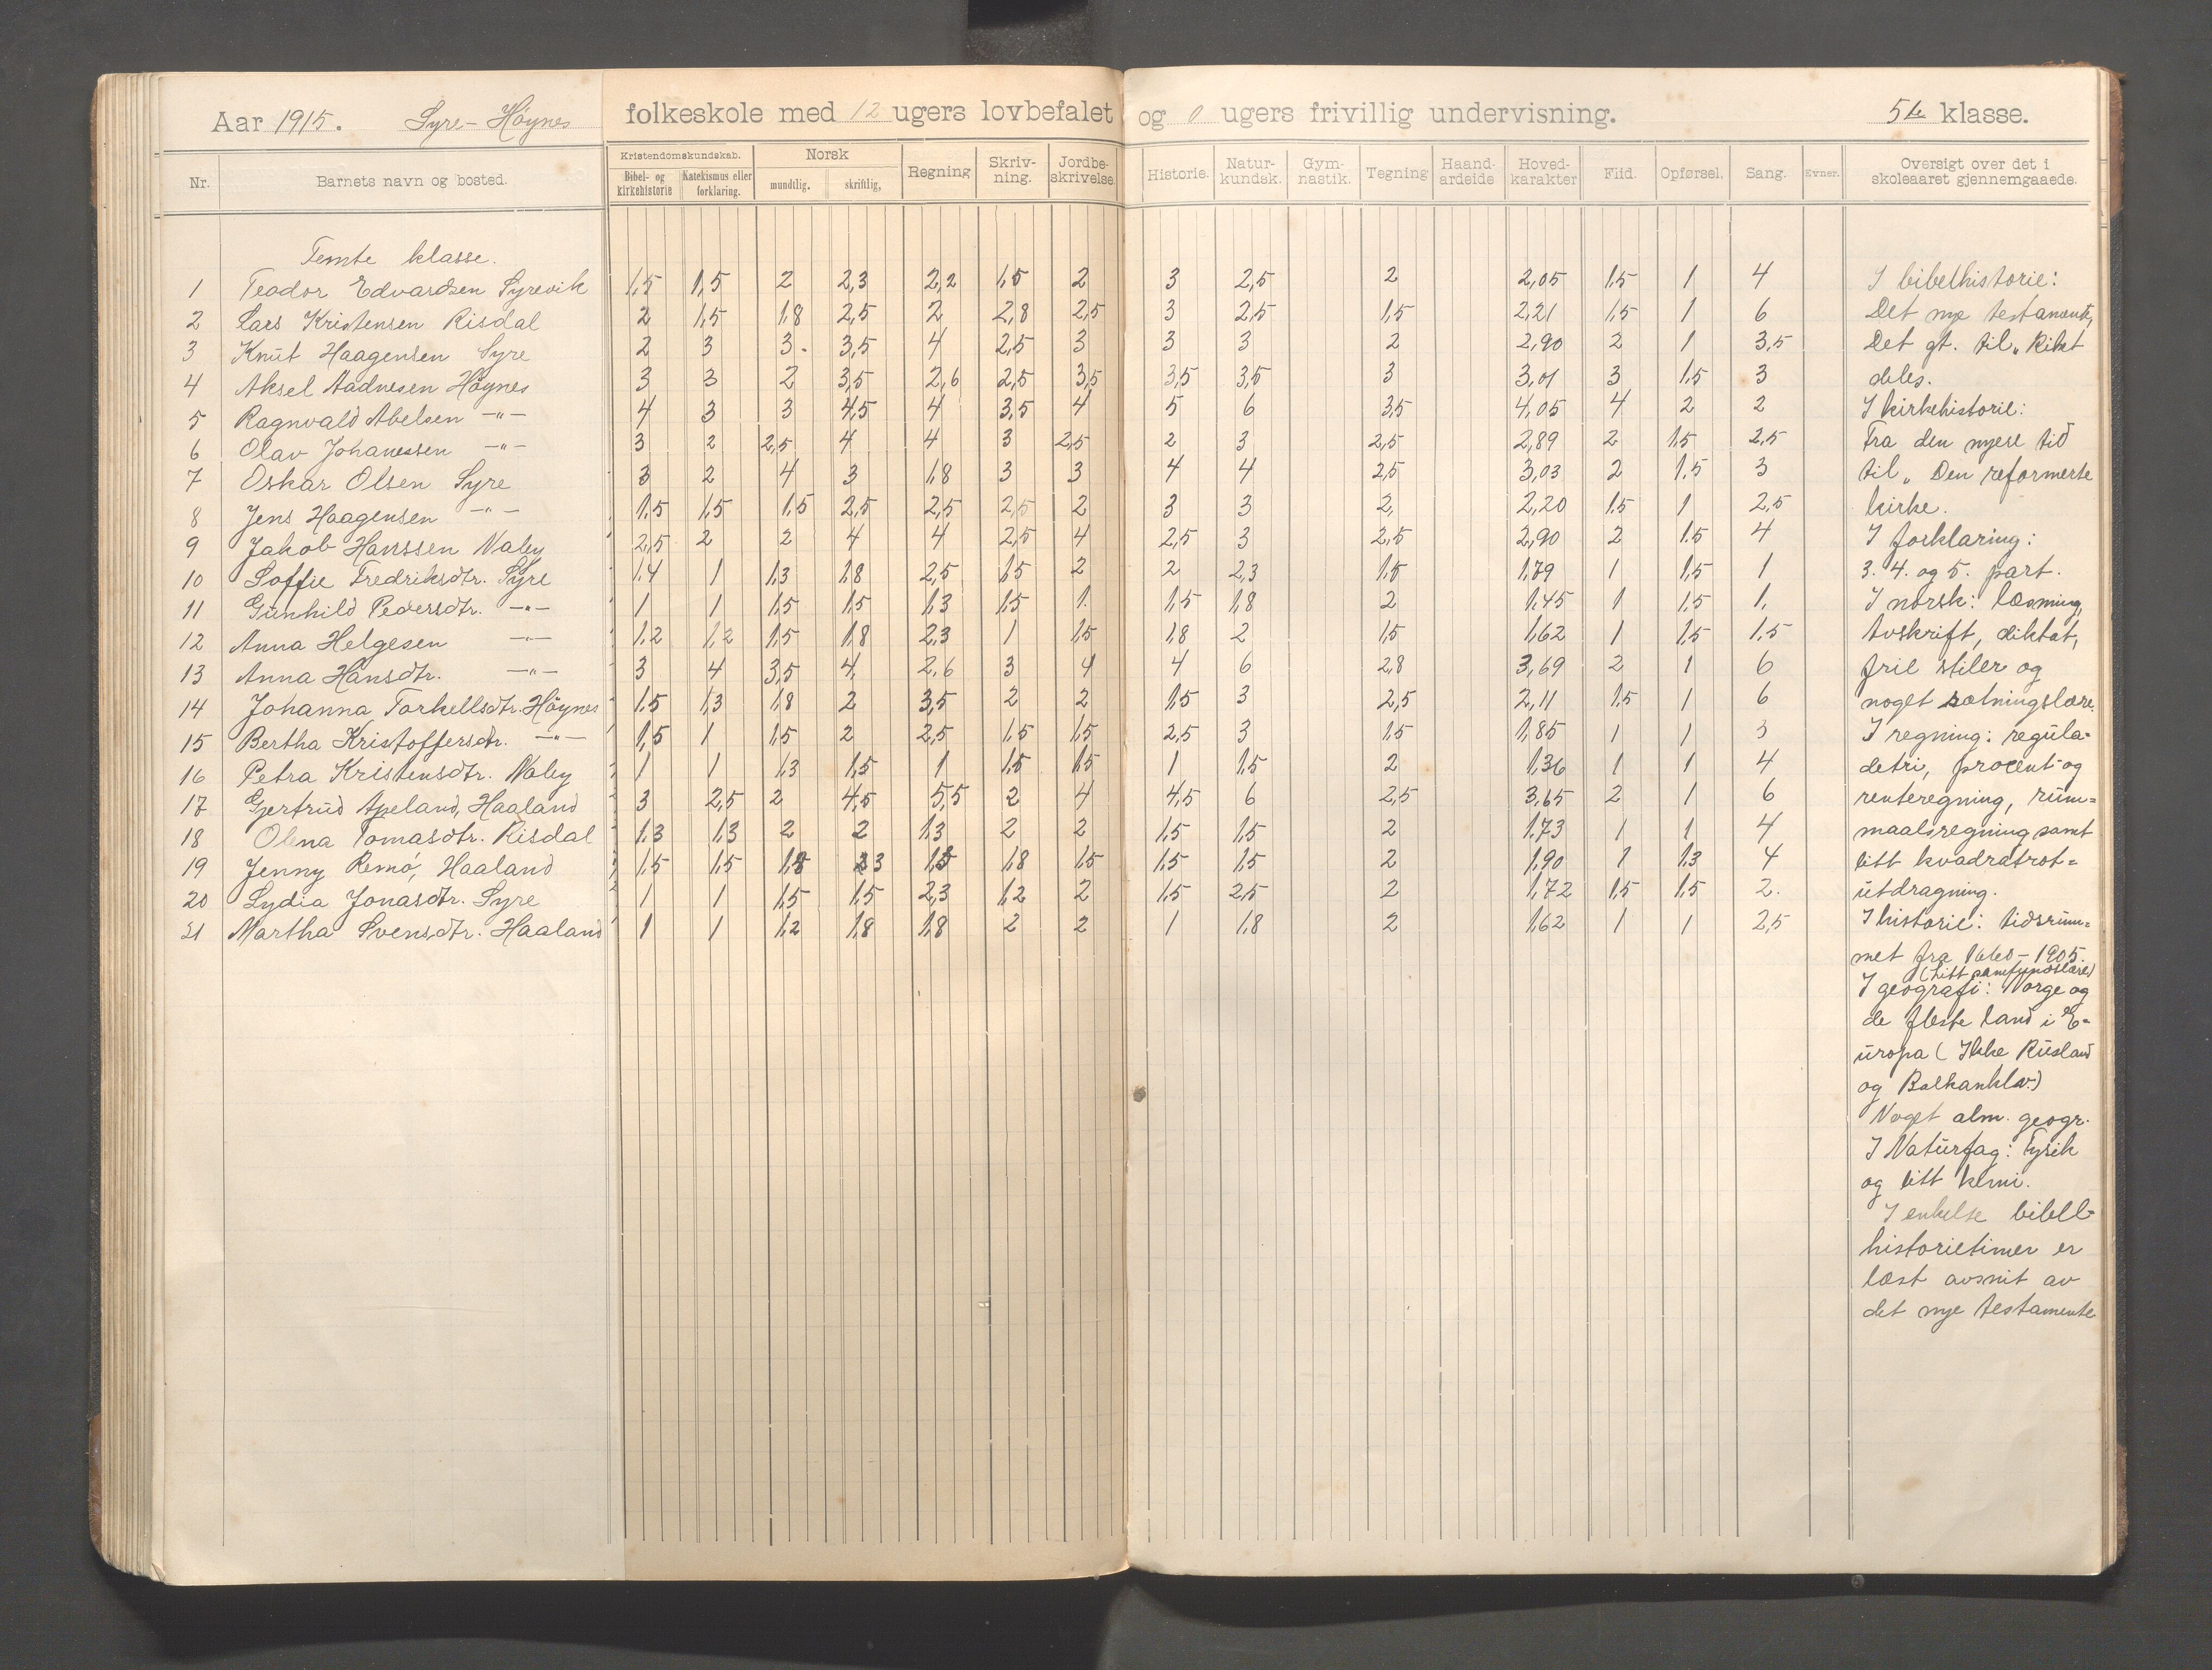 Aar 1915. Syre-Höynes folkeskole med 12 ugers lovbefalet og 0 ugers frivillig undervisning. 5te klasse.
Nr. Barnets navn og bosted. Kristendomskundskab. Bibel- og kirkehistorie Katekismus eller forklaring. Norsk mundtlig. skriftlig, Regning Skriv-ning. Jordbe-skrivelse. Historie. Natur-kundsk. Gym-nastik. Tegning Haand-ardeide Hoved-karakter Flid. Opførsel. Sang. Evner. Oversigt over det i skoleaaret gjennemgaaede.
Femte klasse.
1 Teodor Edvardsen Syrevik 1,5 1,5 2 2,3 2,2 1,5 2 3 2,5 2 2,05 1,5 1 4
2 Lars Kristensen Risdal 2 1,5 1,8 2,5 2 2,8 2,5 3 2,5 1,5 2,21 1,5 1 6
3 Knut Haagensen Syre 2 3 3 3,5 4 2,5 3 3 3 2 2,90 2 1 3,5
4 Aksel Aadnesen Höynes 3 3 2 3,5 2,6 2,5 3,5 3,5 3,5 3 3,01 3 1,5 3
5 Ragnvald Abelsen -"- 4 3 3 4,5 4 3,5 4 5 6 3,5 4,05 4 2 2
6 Olav Johanessen -"- 3 2 2,5 4 4 3 2,5 2 3 2,5 2,89 2 1,5 2,5
7 Oskar Olsen Syre 3 2 4 3 1,8 3 3 4 4 2,5 3,03 2 1,5 3
8 Jens Haagensen -"- 1,5 1,5 1,5 2,5 2,5 2,5 2 3 3 2, 2,20 1,5 1 2,5
9 Jakob Hanssen Naley 2,5 2 2 4 4 2,5 4 2,5 3 2,5 2,90 2 1,5 4
10 Soffie Fredriksdtr. Syre 1,4 1 1,3 1,8 2,5 1,5 2 2 2,3 1,5 1,79 1 1,5 1
11 Gunhild Pedersdtr. -"- 1 1 1,5 1,5 1,3 1,5 1 1,5 1,8 2 1,45 1 1,5 1,
12 Anna Helgesen -"- 1,2 1,2 1,5 1,8 2,3 1 1,5 1,8 2 1,5 1,62 1 1,5 1,5
13 Anna Hansdtr. -"- 3 4 3,5 4, 2,6 3 4 4 6 2,8 3,69 2 1 6
14 Johanna Torkellsdtr. Höynes 1,5 1,3 1,8 2 3,5 2 2 1,5 3 2,5 2,11 1,5 1 6
15 Bertha Kristoffersdtr. -"- 1,5 1 1,5 2 2,5 1,5 1,5 2,5 3 1,5 1,85 1 1 3
16 Petra Kristensdtr. Naley 1 1 1,3 1,5 1 1,5 1,5 1 1,5 2 1,36 1 1 4
17 Gjertrud Apeland, Haaland 3 2,5 2 4,5 5,5 2 4 4,5 6 2,5 3,65 2 1 6
18 Olena Tomasdtr. Risdal 1,3 1,3 2 2 1,3 2 2 1,5 1,5 2 1,73 1 1 4
19 Jenny Remö, Haaland 1,5 1,5 1,8 2,3 1,5 1,8 1,5 1,5 1,5 2 1,90 1 1,3 4
20 Lydia Jonasdtr. Syre 1 1 1,5 1,5 2,3 1,2 2 1,5 2,5 2 1,72 1,5 1,5 2.
21 Martha Svensdtr. Haaland 1 1 1,2 1,8 1,8 2 2 1 1,8 2 1,62 1 1 2,5
I bibelhistorie:
Det nye testamente,
Det gt. til "Riket
deles.
I kirkehistorie:
Fra den nyere tid
til "Den reformerte
kirke.
I forklaring:
3. 4. og 5. part.
I norsk: læsning,
Avskrift, diktat,
frie stiler og
noget sætningslære.
I regning: regula-
detri, procent- og
renteregning, rum=
maalsregning samt
litt kvadratrot=
utdragning.
I historie: tidsrum=
met fra 1660-1905.
(Litt samfundslære)
I geografi: Norge og
de fleste land i E-
uropa (Ikke Rusland
og Balkanhlv.)
Noget alm. geogr.
I Naturfag: Fysik
og litt kemi.
I enkelte bibel-
historietimer er
læst avsnit av
det nye testamente